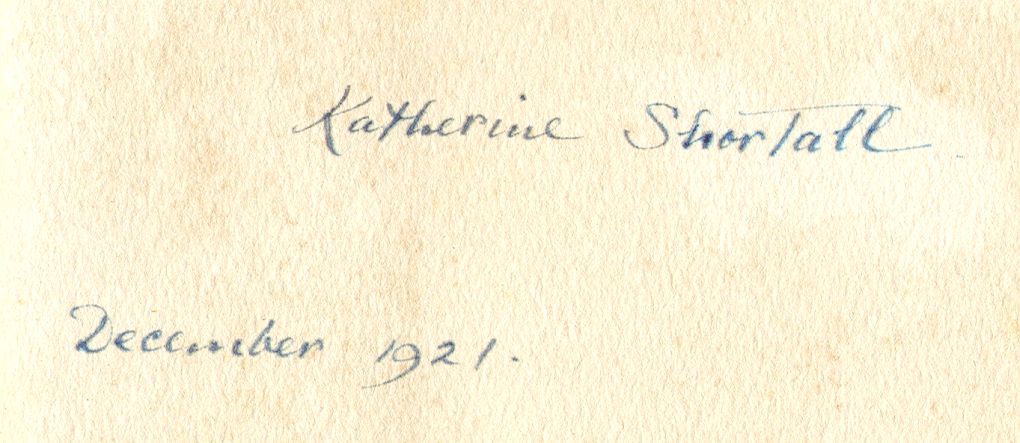 Katherine Shortall
December 1921.